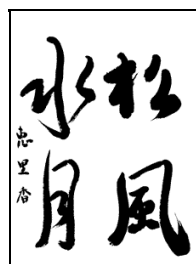 松風
水月
恵里香